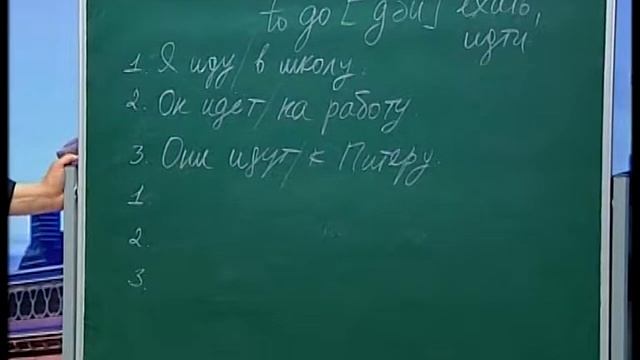 to go [гоу] ехать,
идти
1. Я иду / в школу.
2. Он идёт / на работу.
3. Они идут / к Питеру.
1
2.
3.